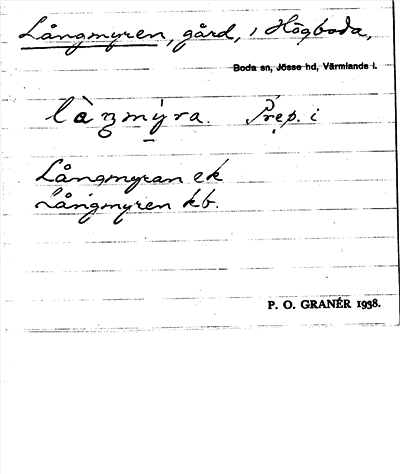 Långmyren, gård, i Högboda,
Boda sn, Jösse hd, Värmlands l.
làŋmy̱ra. Prep. i
Långmyran ek
Långmyren kb.
P. O. GRANÉR 1938.